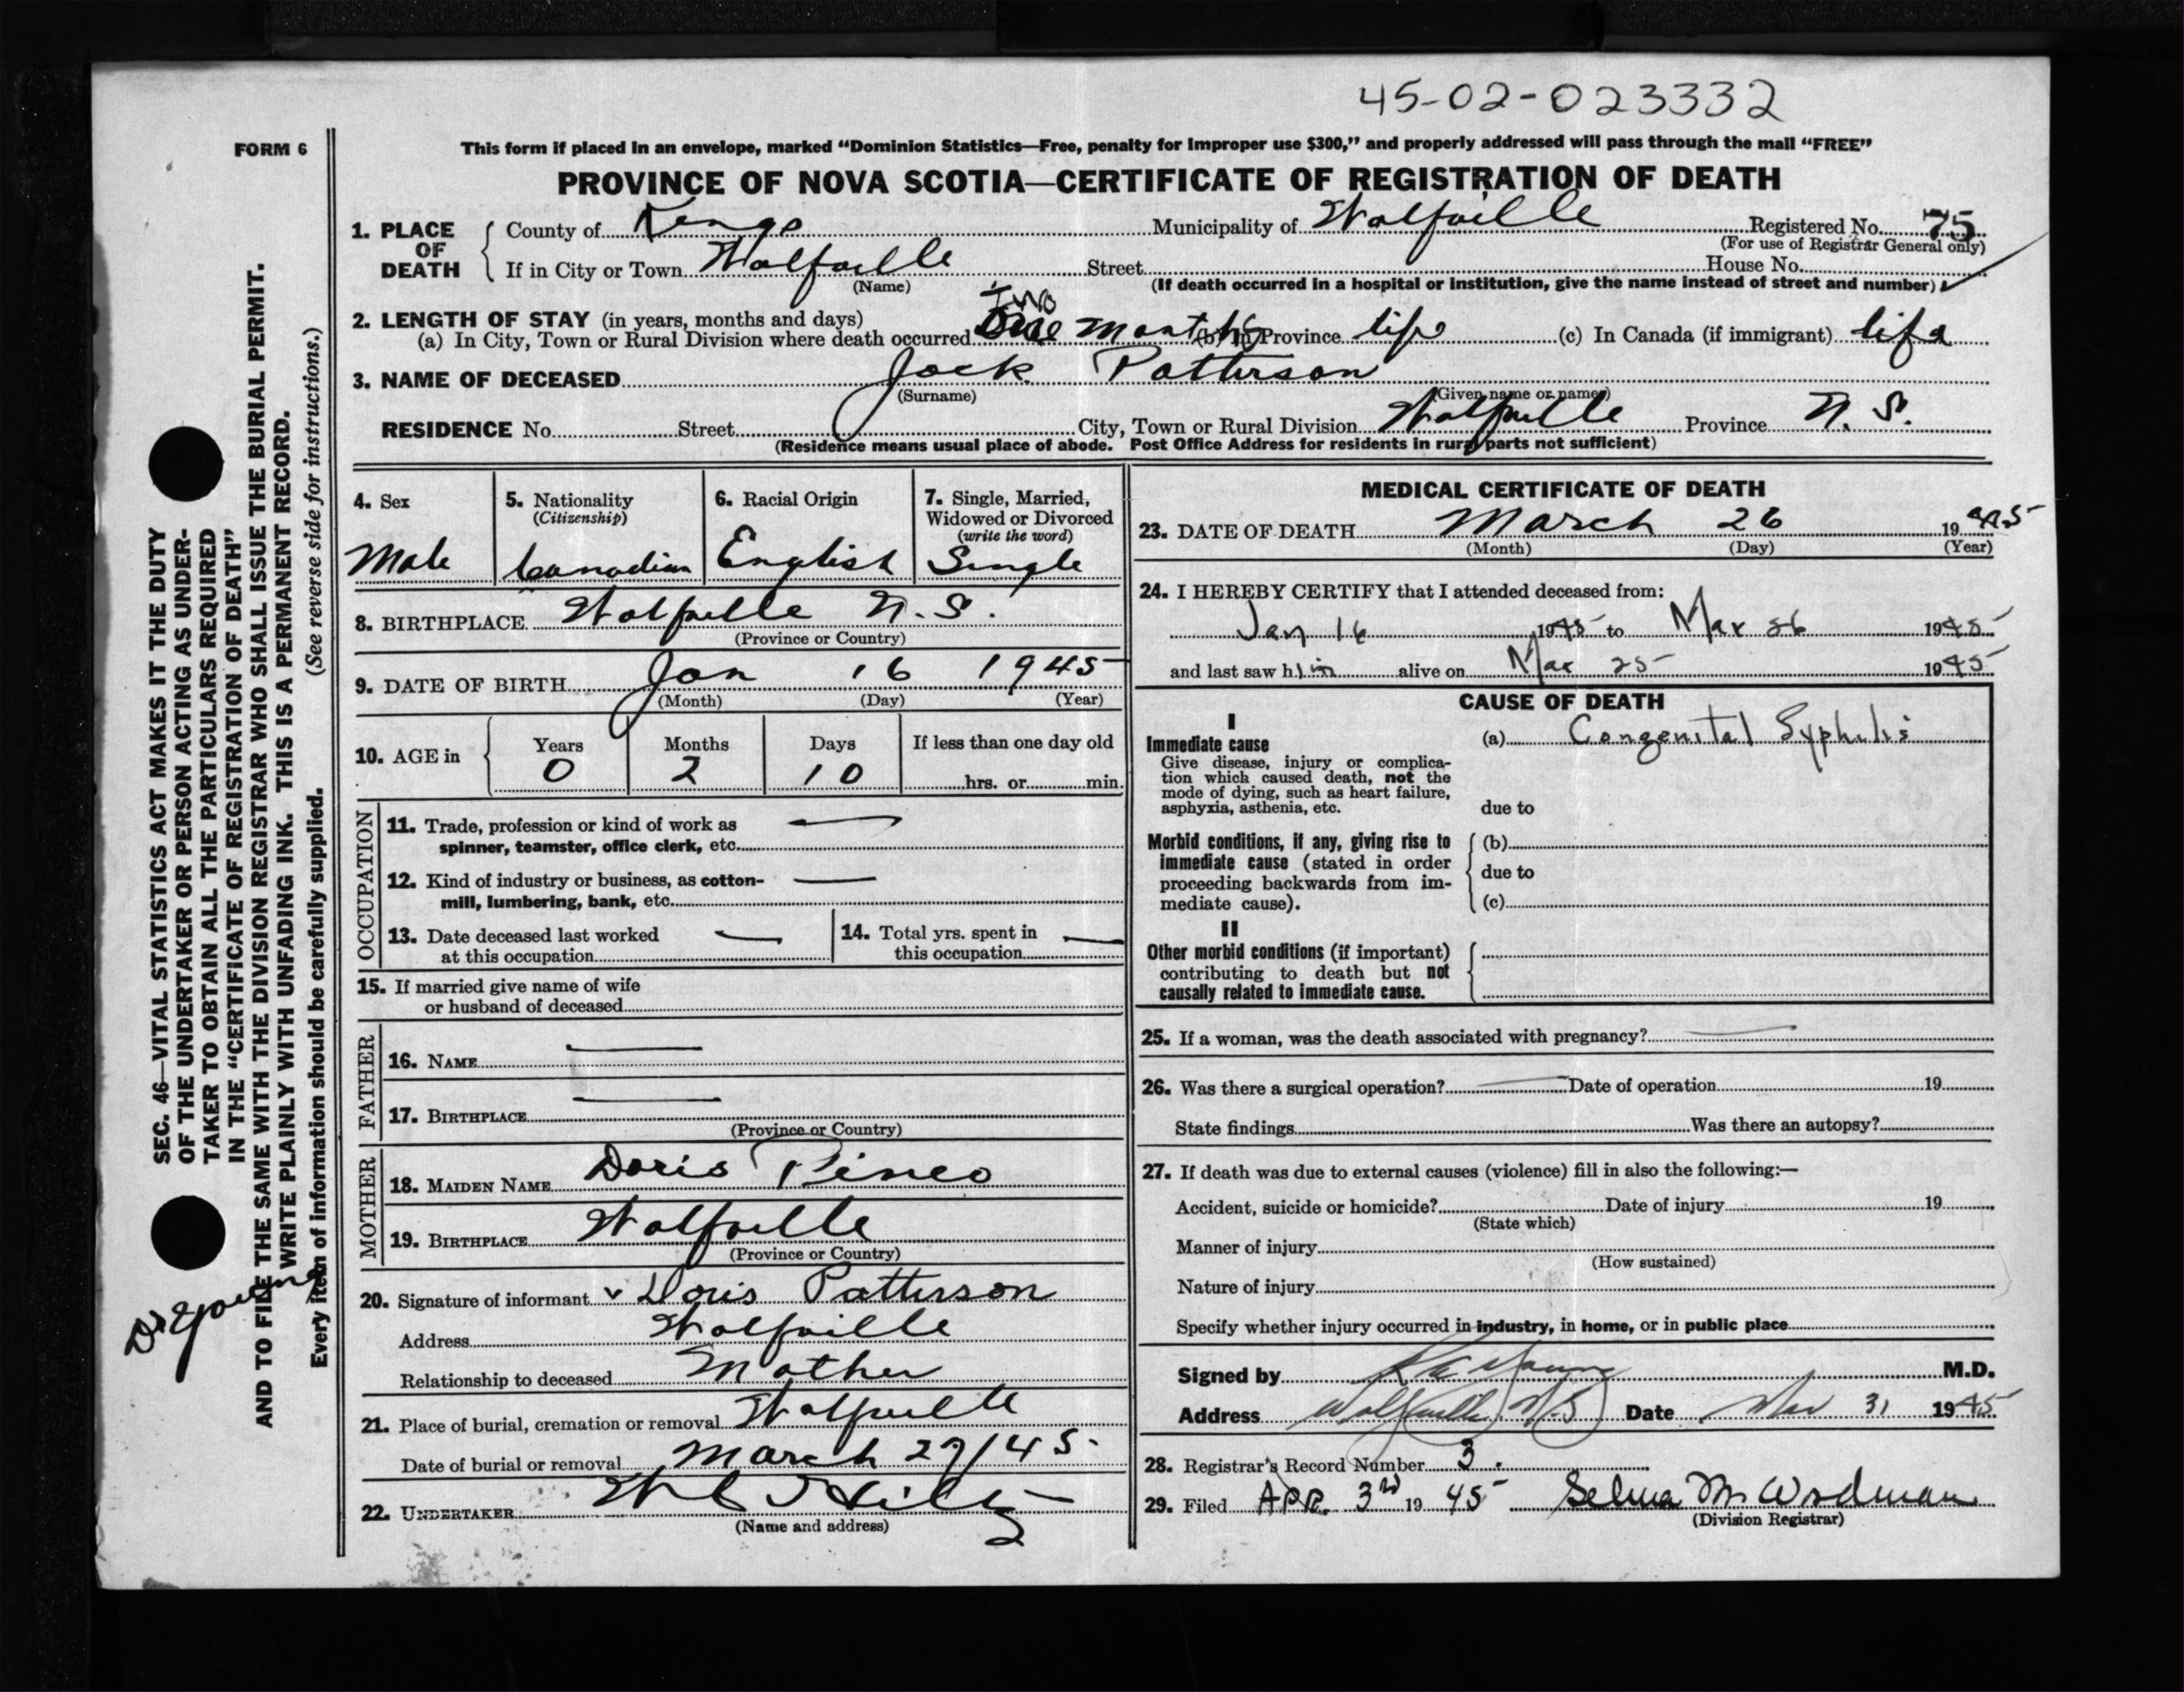 45-02-023332
FORM 6
This form if placed in an envelope, marked "Dominion Statistics—Free, penalty for improper use $300," and properly addressed will pass through the mail "FREE"
PROVINCE OF NOVA SCOTIA—CERTIFICATE OF REGISTRATION OF DEATH
1. PLACE OF DEATH
County of Kings Municipality of Wolfville Registered No. 75
(For use of Registrar General only)
If in City or Town Wolfville Street House No.
(Name) (If death occurred in a hospital or institution, give the name instead of street and number)
2. LENGTH OF STAY (in years, months and days)
Two
(a) In City, Town or Rural Division where death occurred months (b) In Province life (c) In Canada (if immigrant) life
3. NAME OF DECEASED Jack Patterson
(Surname) (Given name or names)
RESIDENCE No. Street City, Town or Rural Division Wolfville Province N.S.
(Residence means usual place of abode. Post Office Address for residents in rural parts not sufficient)
4. Sex
Male
5. Nationality
(Citizenship)
Canadian
6. Racial Origin
English
7. Single, Married,
Widowed or Divorced
(write the word)
Single
8. BIRTHPLACE Wolfville N.S.
(Province or Country)
9. DATE OF BIRTH Jan 16 1945
(Month) (Day) (Year)
10. AGE in
Years Months Days If less than one day old
0 2 10 hrs. or min.
OCCUPATION
11. Trade, profession or kind of work as
spinner, teamster, office clerk, etc.
12. Kind of industry or business, as cotton-
mill, lumbering, bank, etc.
13. Date deceased last worked
at this occupation
14. Total yrs. spent in
this occupation
15. If married give name of wife
or husband of deceased
FATHER
16. NAME
17. BIRTHPLACE
(Province or Country)
MOTHER
18. MAIDEN NAME Doris Pineo
19. BIRTHPLACE Wolfville
(Province or Country)
20. Signature of informant Doris Patterson
Address Wolfville
Relationship to deceased Mother
21. Place of burial, cremation or removal Wolfville
Date of burial or removal March 27/45
22. UNDERTAKER
(Name and address)
MEDICAL CERTIFICATE OF DEATH
23. DATE OF DEATH March 26 1945
(Month) (Day) (Year)
24. I HEREBY CERTIFY that I attended deceased from:
Jan 16 1945 to Mar 26 1945
and last saw him alive on Mar 25 1945
CAUSE OF DEATH
I
Immediate cause
Give disease, injury or complica-
tion which caused death, not the
mode of dying, such as heart failure,
asphyxia, asthenia, etc.
(a) Congenital Syphilis
due to
Morbid conditions, if any, giving rise to
immediate cause (stated in order
proceeding backwards from im-
mediate cause).
(b)
due to
(c)
II
Other morbid conditions (if important)
contributing to death but not
causally related to immediate cause.
25. If a woman, was the death associated with pregnancy?
26. Was there a surgical operation? Date of operation 19
State findings Was there an autopsy?
27. If death was due to external causes (violence) fill in also the following:—
Accident, suicide or homicide? Date of injury 19
(State which)
Manner of injury
(How sustained)
Nature of injury
Specify whether injury occurred in industry, in home, or in public place
Signed by Young M.D.
Address Wolfville, N.S. Date Mar 31 1945
28. Registrar's Record Number 3.
29. Filed APR. 3rd 1945 Selma M Woodman
(Division Registrar)
SEC. 46—VITAL STATISTICS ACT MAKES IT THE DUTY
OF THE UNDERTAKER OR PERSON ACTING AS UNDER-
TAKER TO OBTAIN ALL THE PARTICULARS REQUIRED
IN THE "CERTIFICATE OF REGISTRATION OF DEATH"
AND TO FILE THE SAME WITH THE DIVISION REGISTRAR WHO SHALL ISSUE THE BURIAL PERMIT.
WRITE PLAINLY WITH UNFADING INK. THIS IS A PERMANENT RECORD.
Every item of information should be carefully supplied. (See reverse side for instructions.)
Dr Young